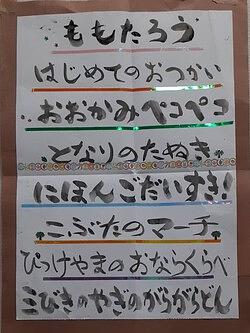 ももたろう
はじめてのおつかい
おおかみペコペコ
となりのたぬき
にほんごだいすき
こぶたのマーチ
ぴっけやまのおならくらべ
三びきのやぎのがらがらどん